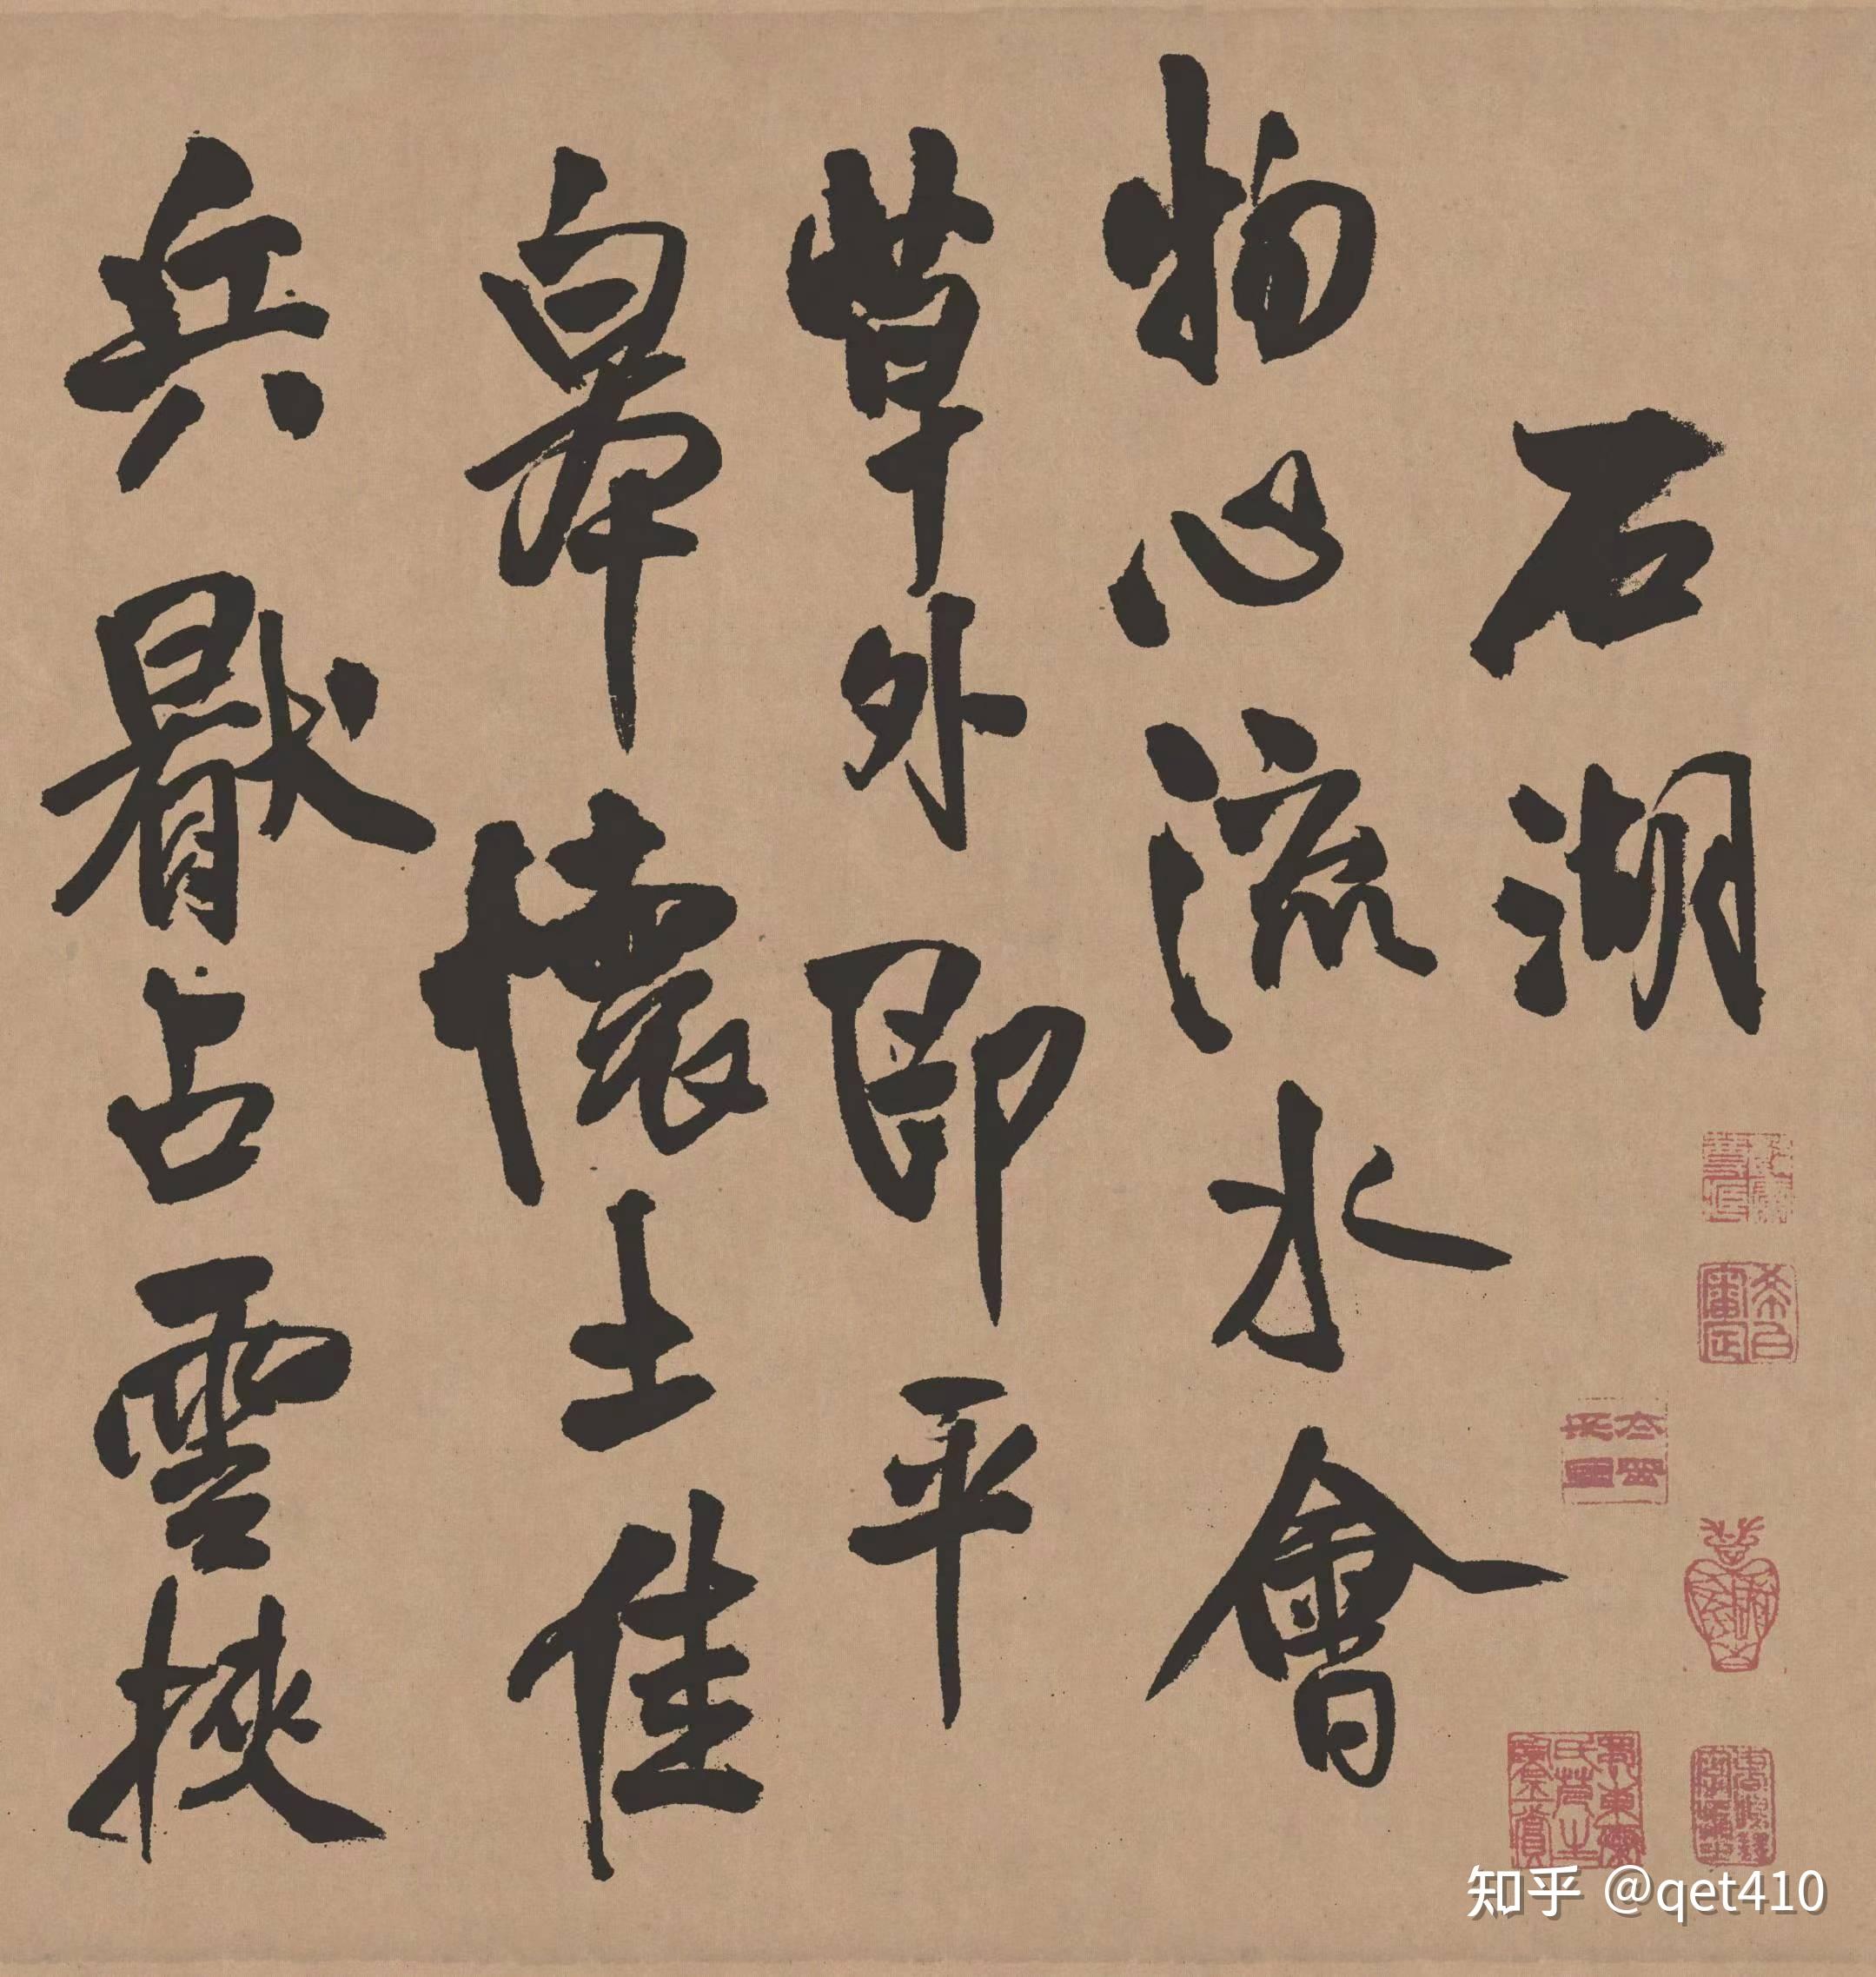 石湖
物心流水會
草外即平
皋懷土佳
兵猒占雲挾
知乎 @qet410